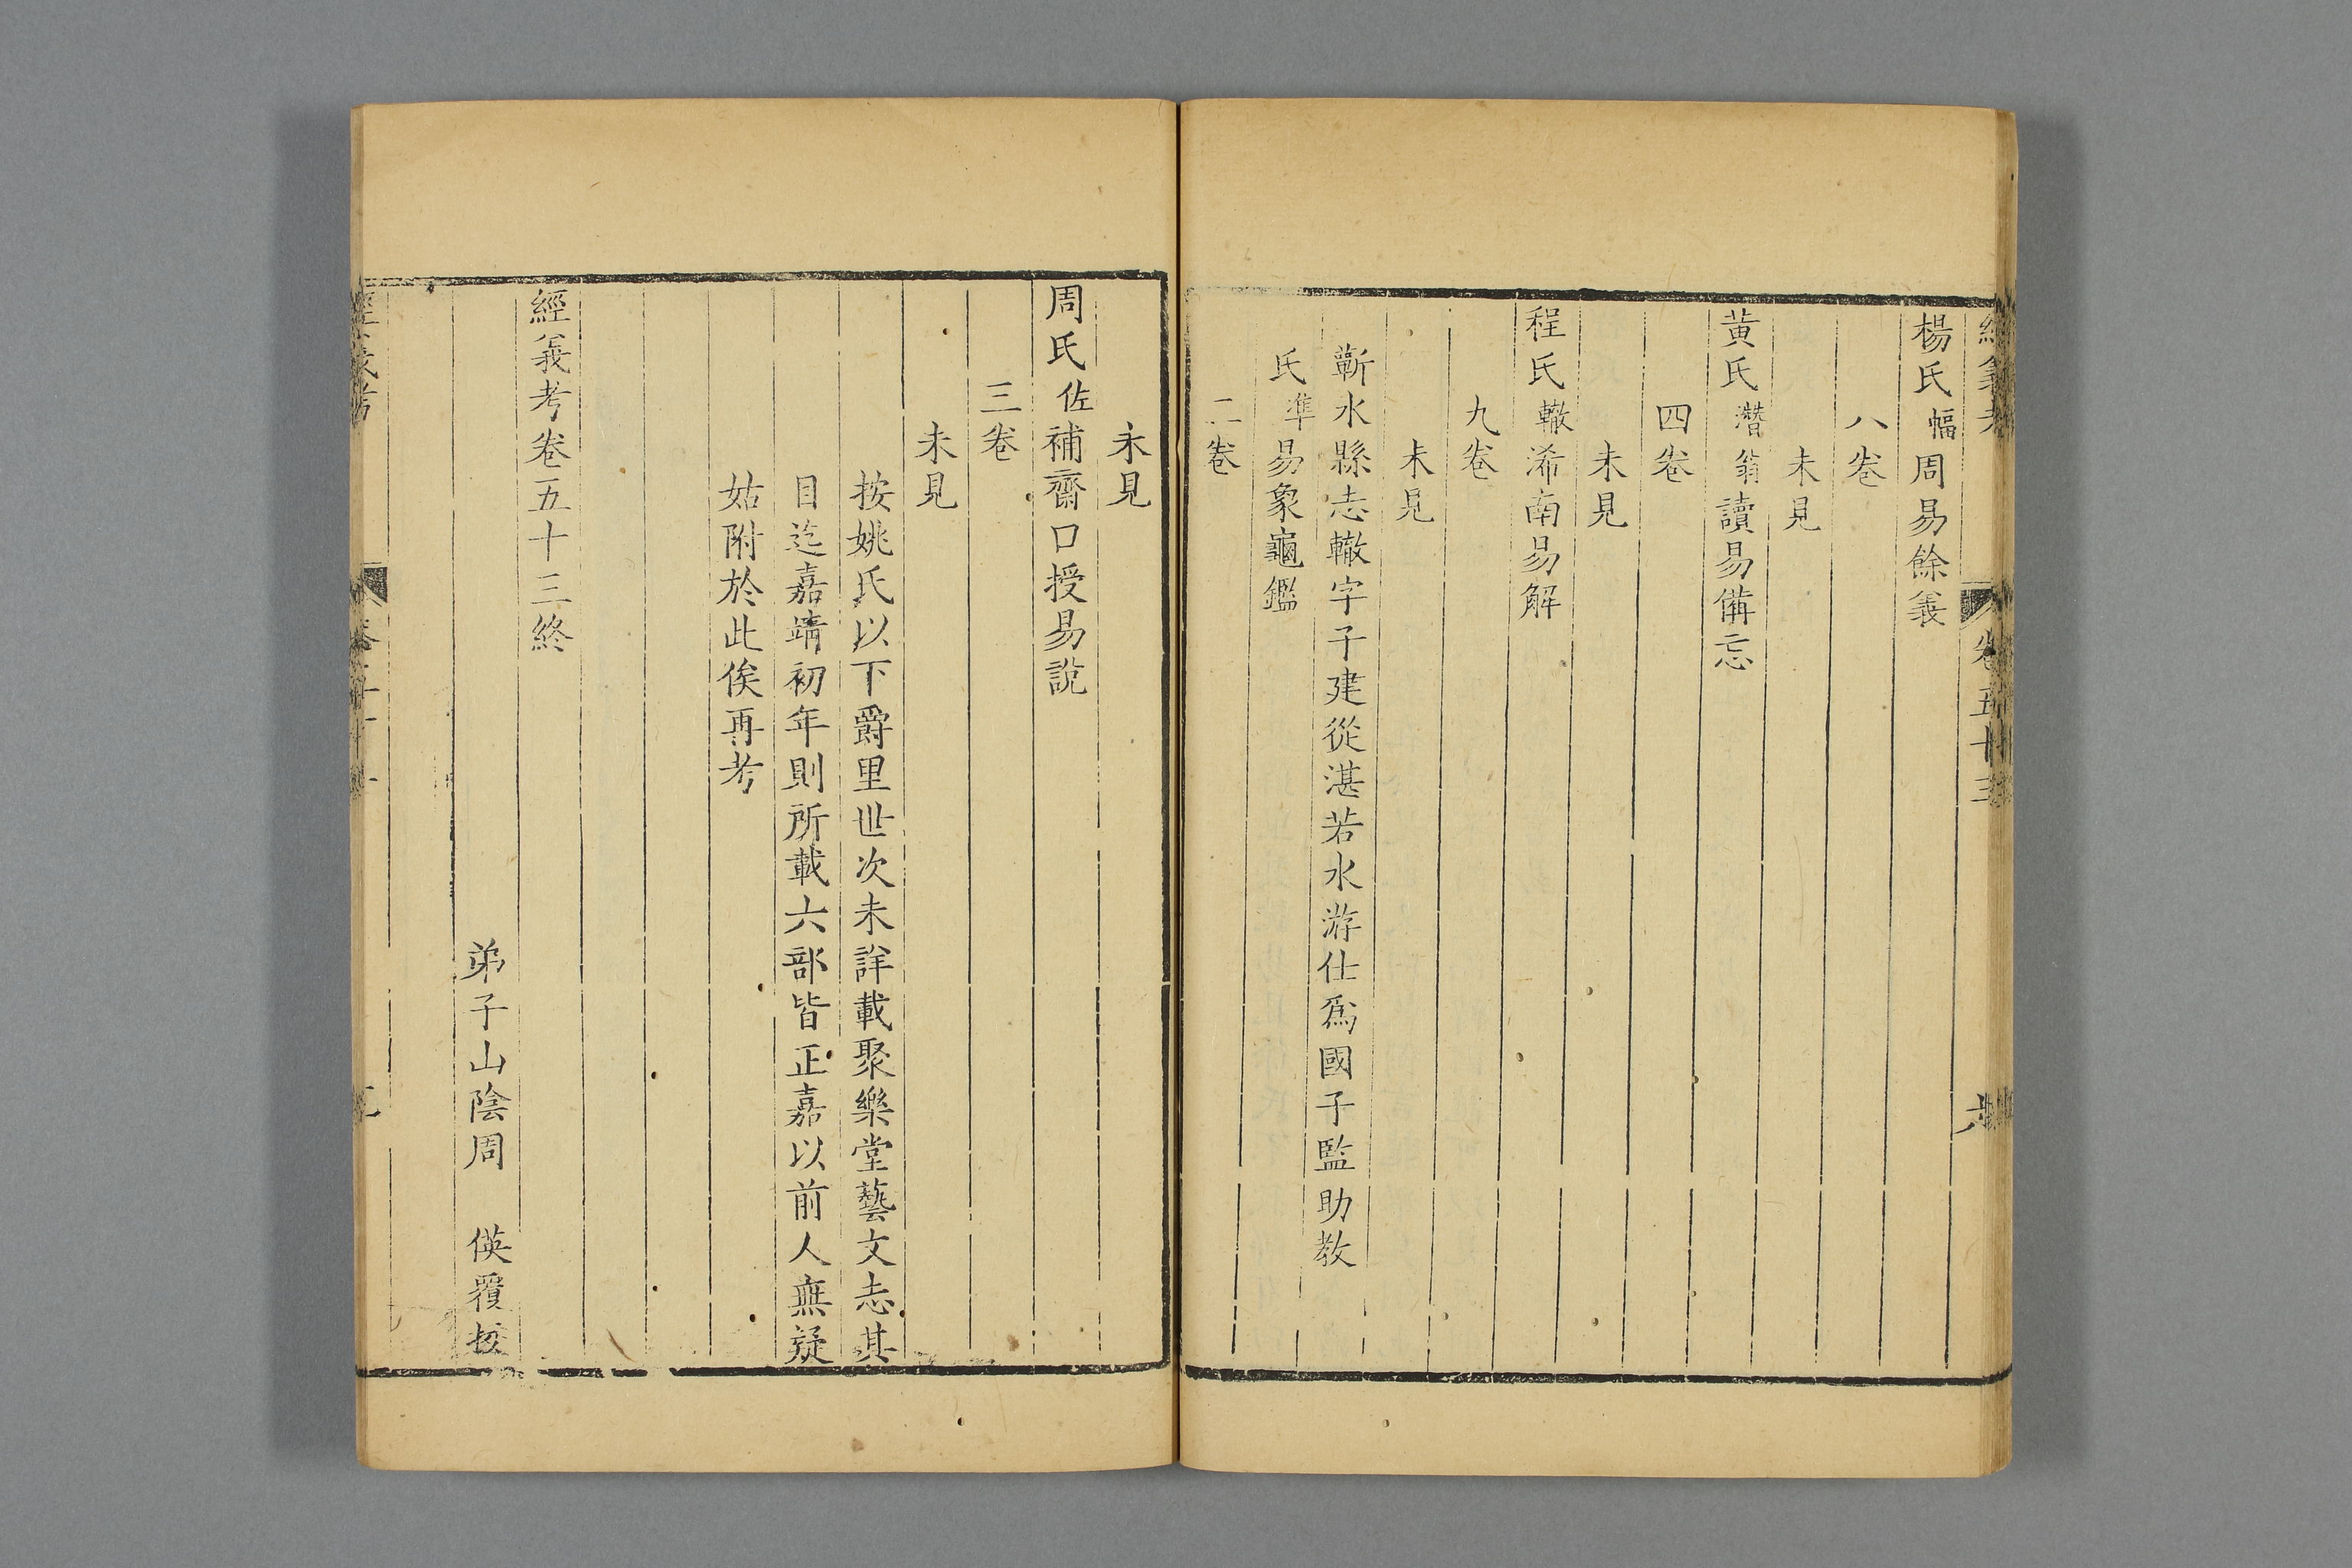 經義考
卷五十三
楊氏幅周易餘義
八卷
未見
黃氏潛翁讀易備忘
四卷
未見
程氏轍浠南易解
九卷
未見
蘄水縣志轍字子建從湛若水游仕爲國子監助教
氏準易象龜鑑
二卷
未見
周氏佐補齋口授易說
三卷
未見
按姚氏以下爵里世次未詳載聚樂堂藝文志其
目迄嘉靖初年則所載六部皆正嘉以前人無疑
姑附於此俟再考
經義考卷五十三終
弟子山陰周 偀覆挍
經義考